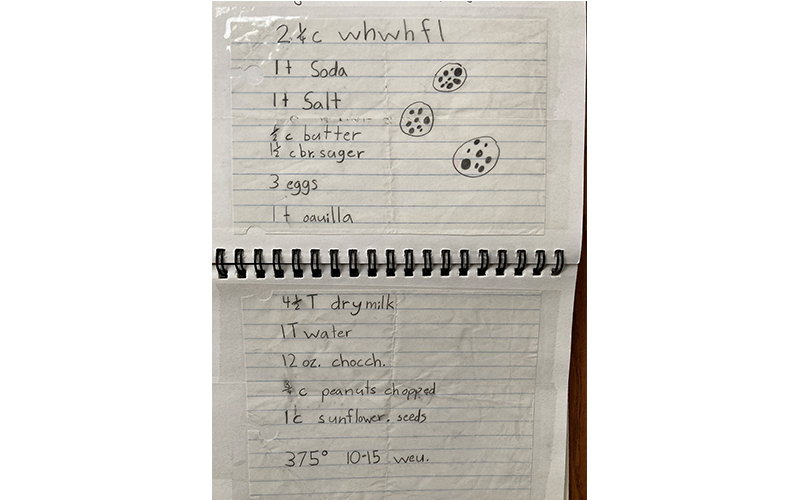 2 ¼ c whwh fl
1 t Soda
1 t Salt
½ c butter
1½ c br. suger
3 eggs
1 t vauilla
4½ T dry milk
1 T water
12 oz. chocch.
¾ c peanuts chopped
1 c sunflower. seeds
375° 10-15 weu.